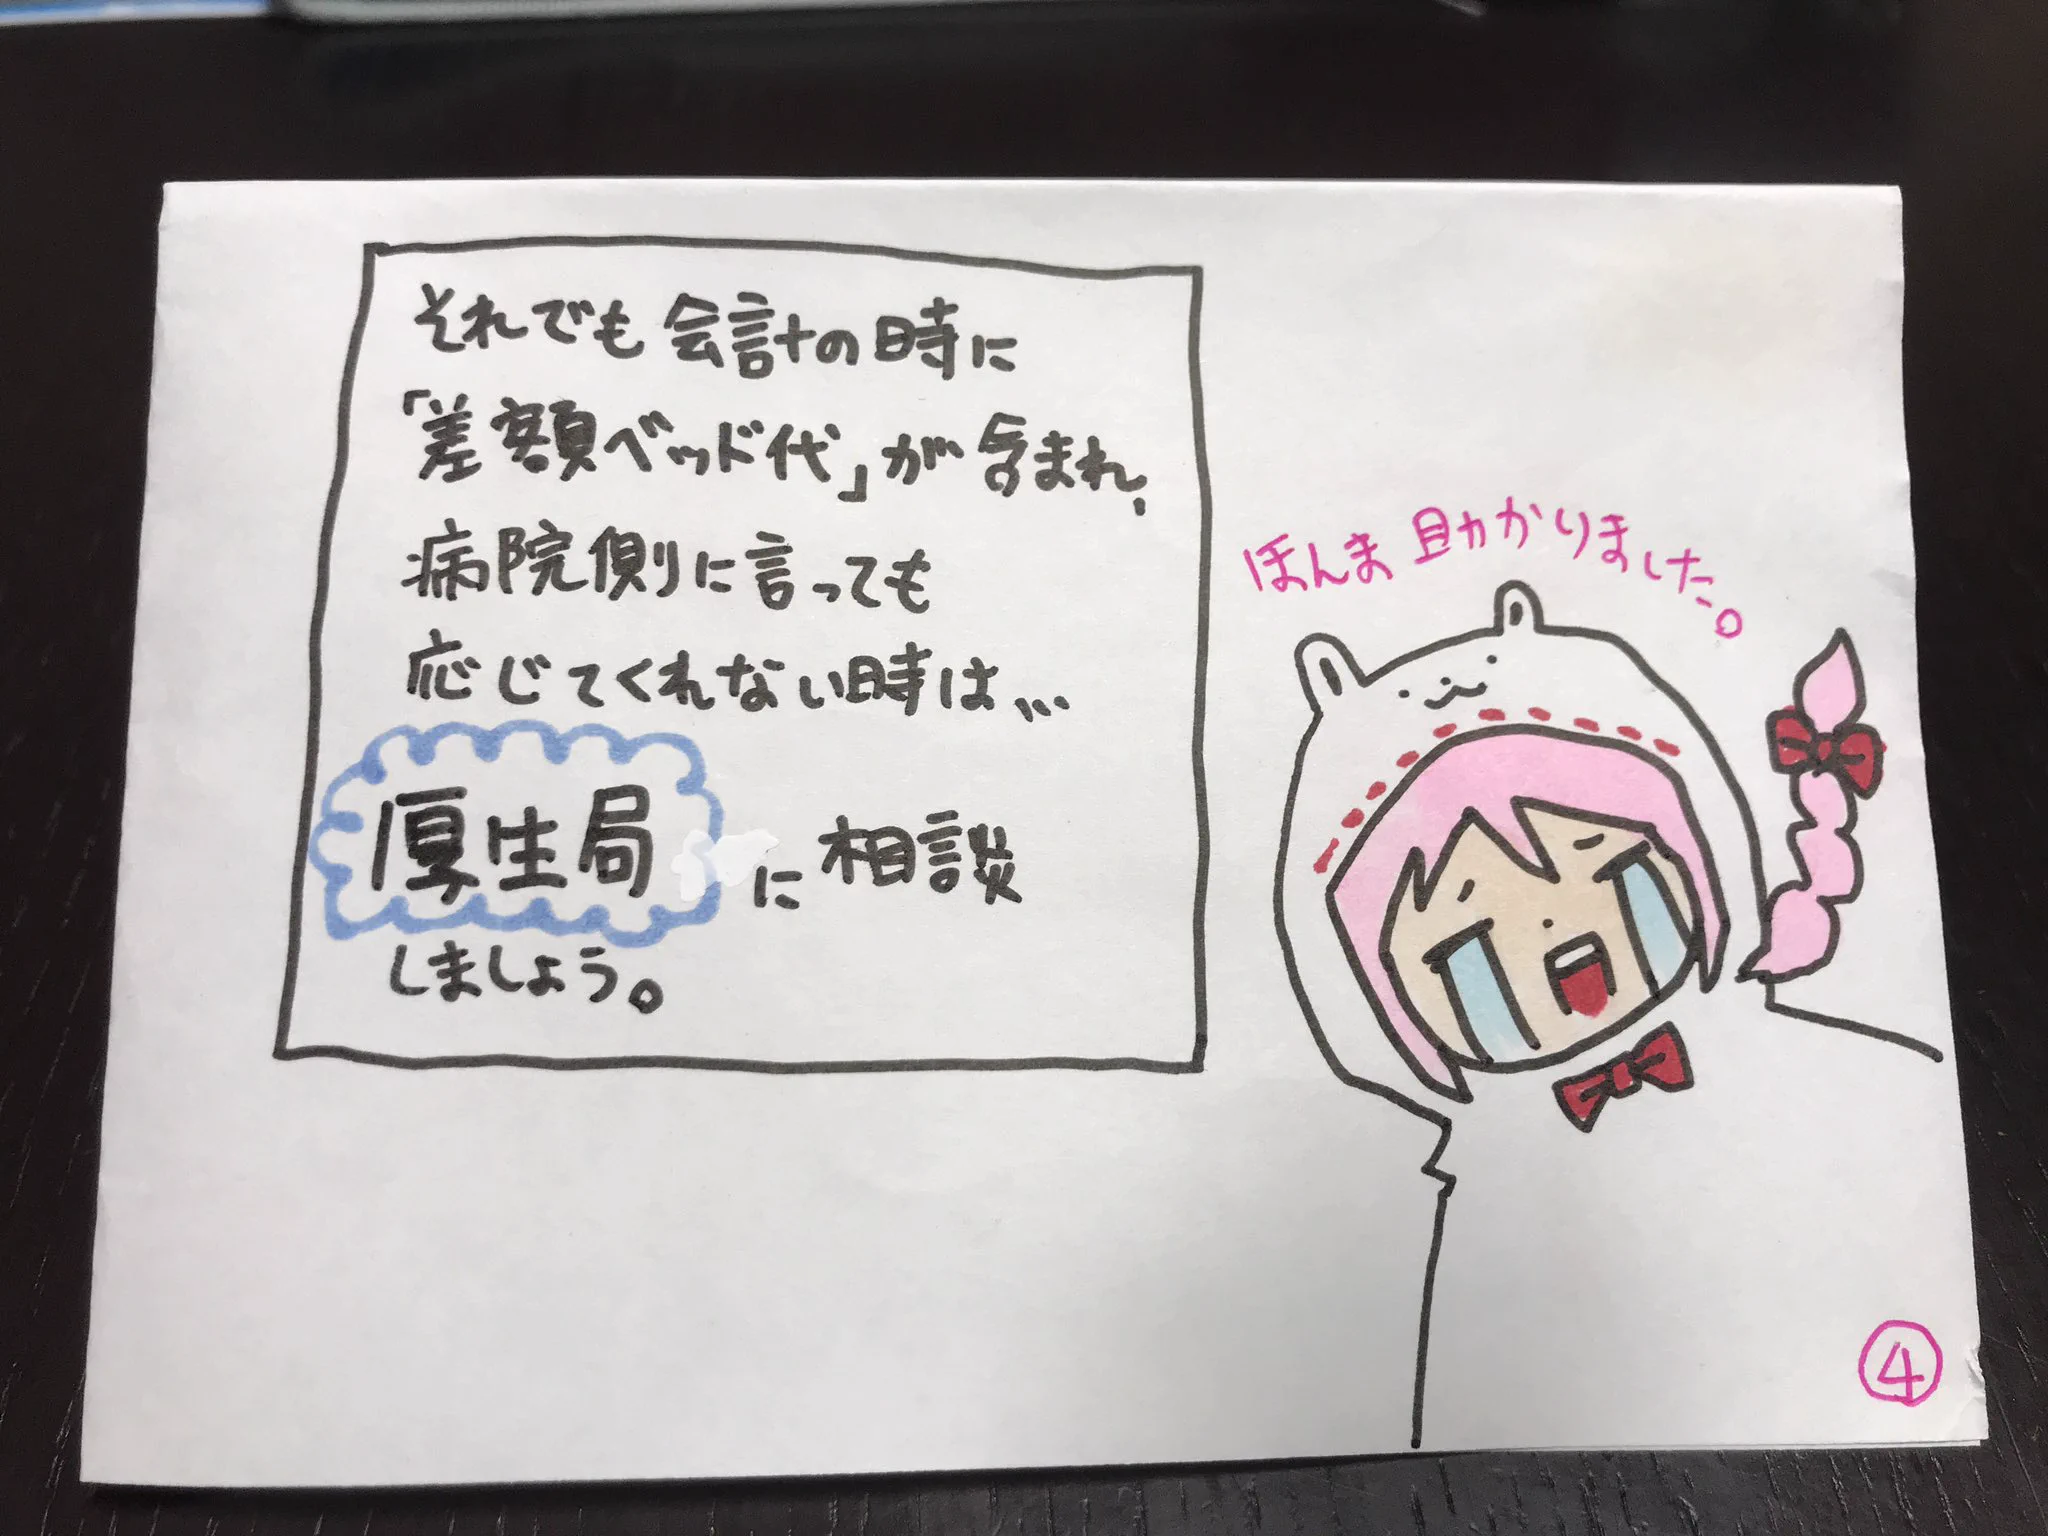 それでも会計の時に
「差額ベッド代」が含まれ、
病院側に言っても
応じてくれない時は、、、
厚生局に相談
しましょう。
ほんま助かりました。
④